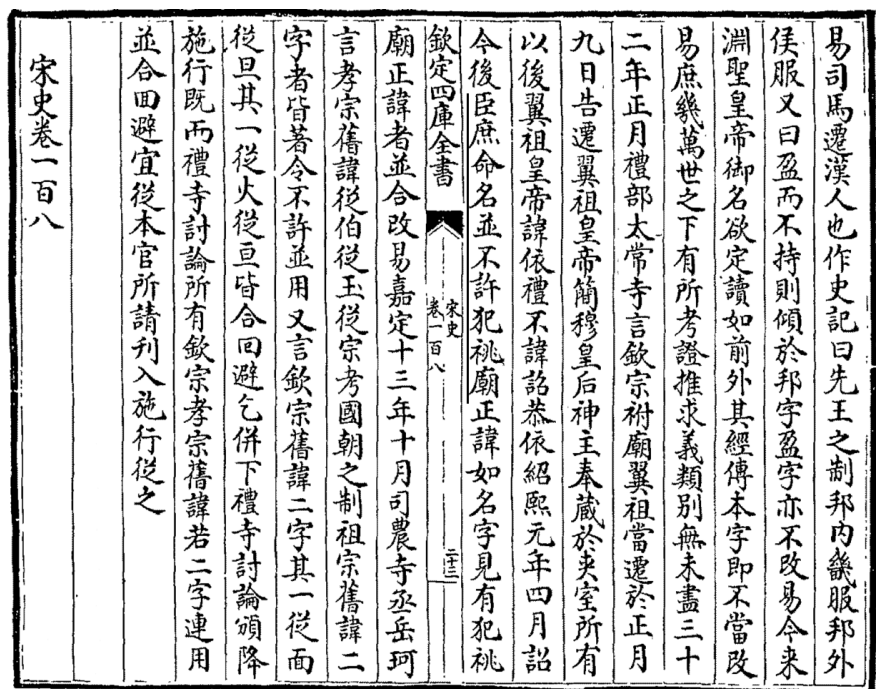 易司馬遷漢人也作史記曰先王之制邦内畿服邦外
侯服又曰盈而不持則傾於邦字盈字亦不改易今来
淵聖皇帝御名欲定讀如前外其經傳本字即不當改
易庶幾萬世之下有所考證推求義類别無未盡三十
二年正月禮部太常寺言欽宗祔廟翼祖當遷於正月
九日告遷翼祖皇帝簡穆皇后神主奉藏於夾室所有
以後翼祖皇帝諱依禮不諱詔恭依紹熙元年四月詔
今後臣庶命名並不許犯祧廟正諱如名字見有犯祧
欽定四庫全書
宋史
卷一百八
二十三
廟正諱者並合改易嘉定十三年十月司農寺丞岳珂
言孝宗舊諱從伯從玉從宗考國朝之制祖宗舊諱二
字者皆著令不許並用又言欽宗舊諱二字其一從面
從旦其一從火從亘皆合回避乞併下禮寺討論頒降
施行既而禮寺討論所有欽宗孝宗舊諱若二字連用
並合回避宜從本官所請刊入施行從之
宋史卷一百八